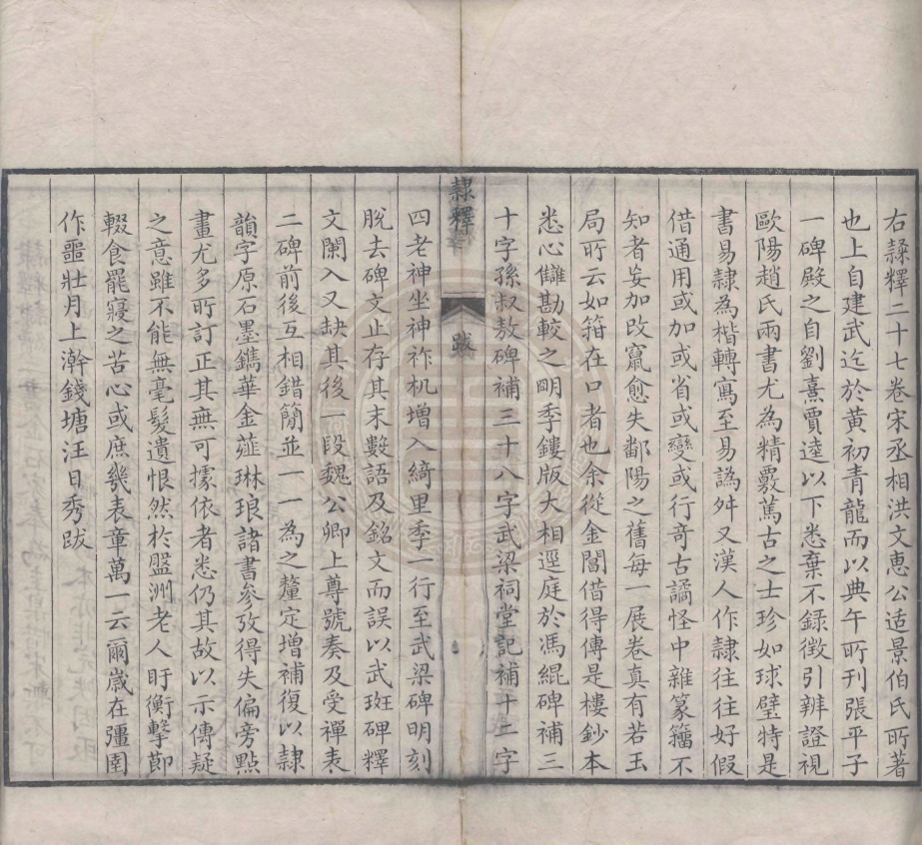 右隸釋二十七卷宋丞相洪文惠公适景伯氏所著
也上自建武迄於黃初青龍而以典午所刊張平子
一碑殿之自劉熹賈逵以下悉棄不錄徵引辨證視
歐陽趙氏兩書尤為精覈篤古之士珍如球璧特是
書易隸為楷轉寫至易譌舛又漢人作隸往往好假
借通用或加或省或變或行奇古譎怪中雜篆籀不
知者妄加改竄愈失鄱陽之舊每一展卷真有若玉
局所云如箝在口者也余從金閶借得傳是樓鈔本
悉心讎勘較之明季鏤版大相逕庭於馮緄碑補三
十字孫叔敖碑補三十八字武梁祠堂記補十二字
隸釋
跋
四老神坐神祚机增入綺里季一行至武梁碑明刻
脫去碑文止存其末數語及銘文而誤以武斑碑釋
文闌入又缺其後一段魏公卿上尊號奏及受禪表
二碑前後互相錯簡並一一為之釐定增補復以隸
韻字原石墨鐫華金薤琳琅諸書參攷得失偏旁點
畫尤多所訂正其無可據依者悉仍其故以示傳疑
之意雖不能無毫髮遺恨然於盤洲老人盱衡擊節
輟食罷寢之苦心或庶幾表章萬一云爾歲在彊圉
作噩壯月上澣錢塘汪日秀跋